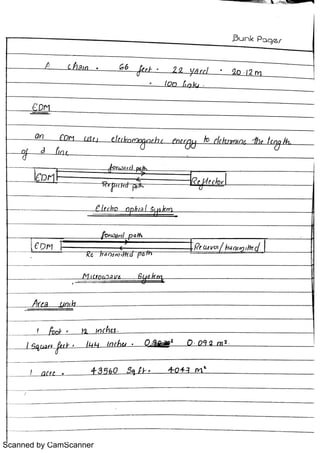 Bunk Pages
A chain = 66 feet = 22 yard = 20.12 m
= 100 links
EDM
an EDM uses electromagnetic energy to determine the length
of a line
forward path
EDM
Reflector
Reflected path
Electro optical System
forward path
EDM
Receiver/transmitted
Re transmitted path
Microwave System
Area units
1 foot = 12 inches.
1 Square feet = 144 inches = 0.092 m²
1 acre = 43560 Sq ft = 4047 m²
Scanned by CamScanner